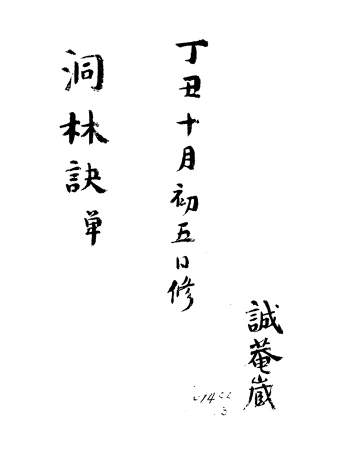 誠菴蔵
丁丑十月初五日修
洞林訣 単